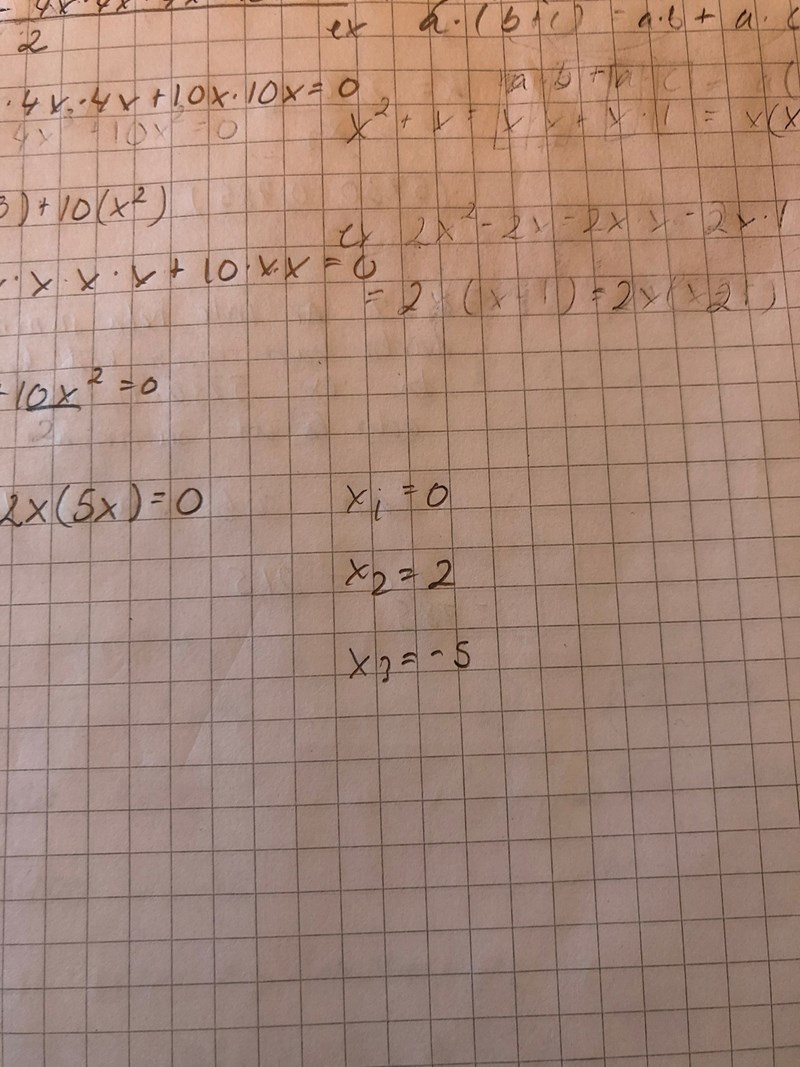 4x·4x·4x
2
ex a·(b+c) = a·b + a·c
·4x·4x+10x·10x=0
a·b + a·c = (
4x³+10x²=0
x²+x=x·x+x·1=x(x
3)+10(x²)
ex 2x²-2x=2x·x-2x·1
·x·x·x+10·x·x=0
=2x(x-1)=2x(x21)
10x²=0
2
2x(5x)=0
x₁=0
x₂=2
x₃=-5